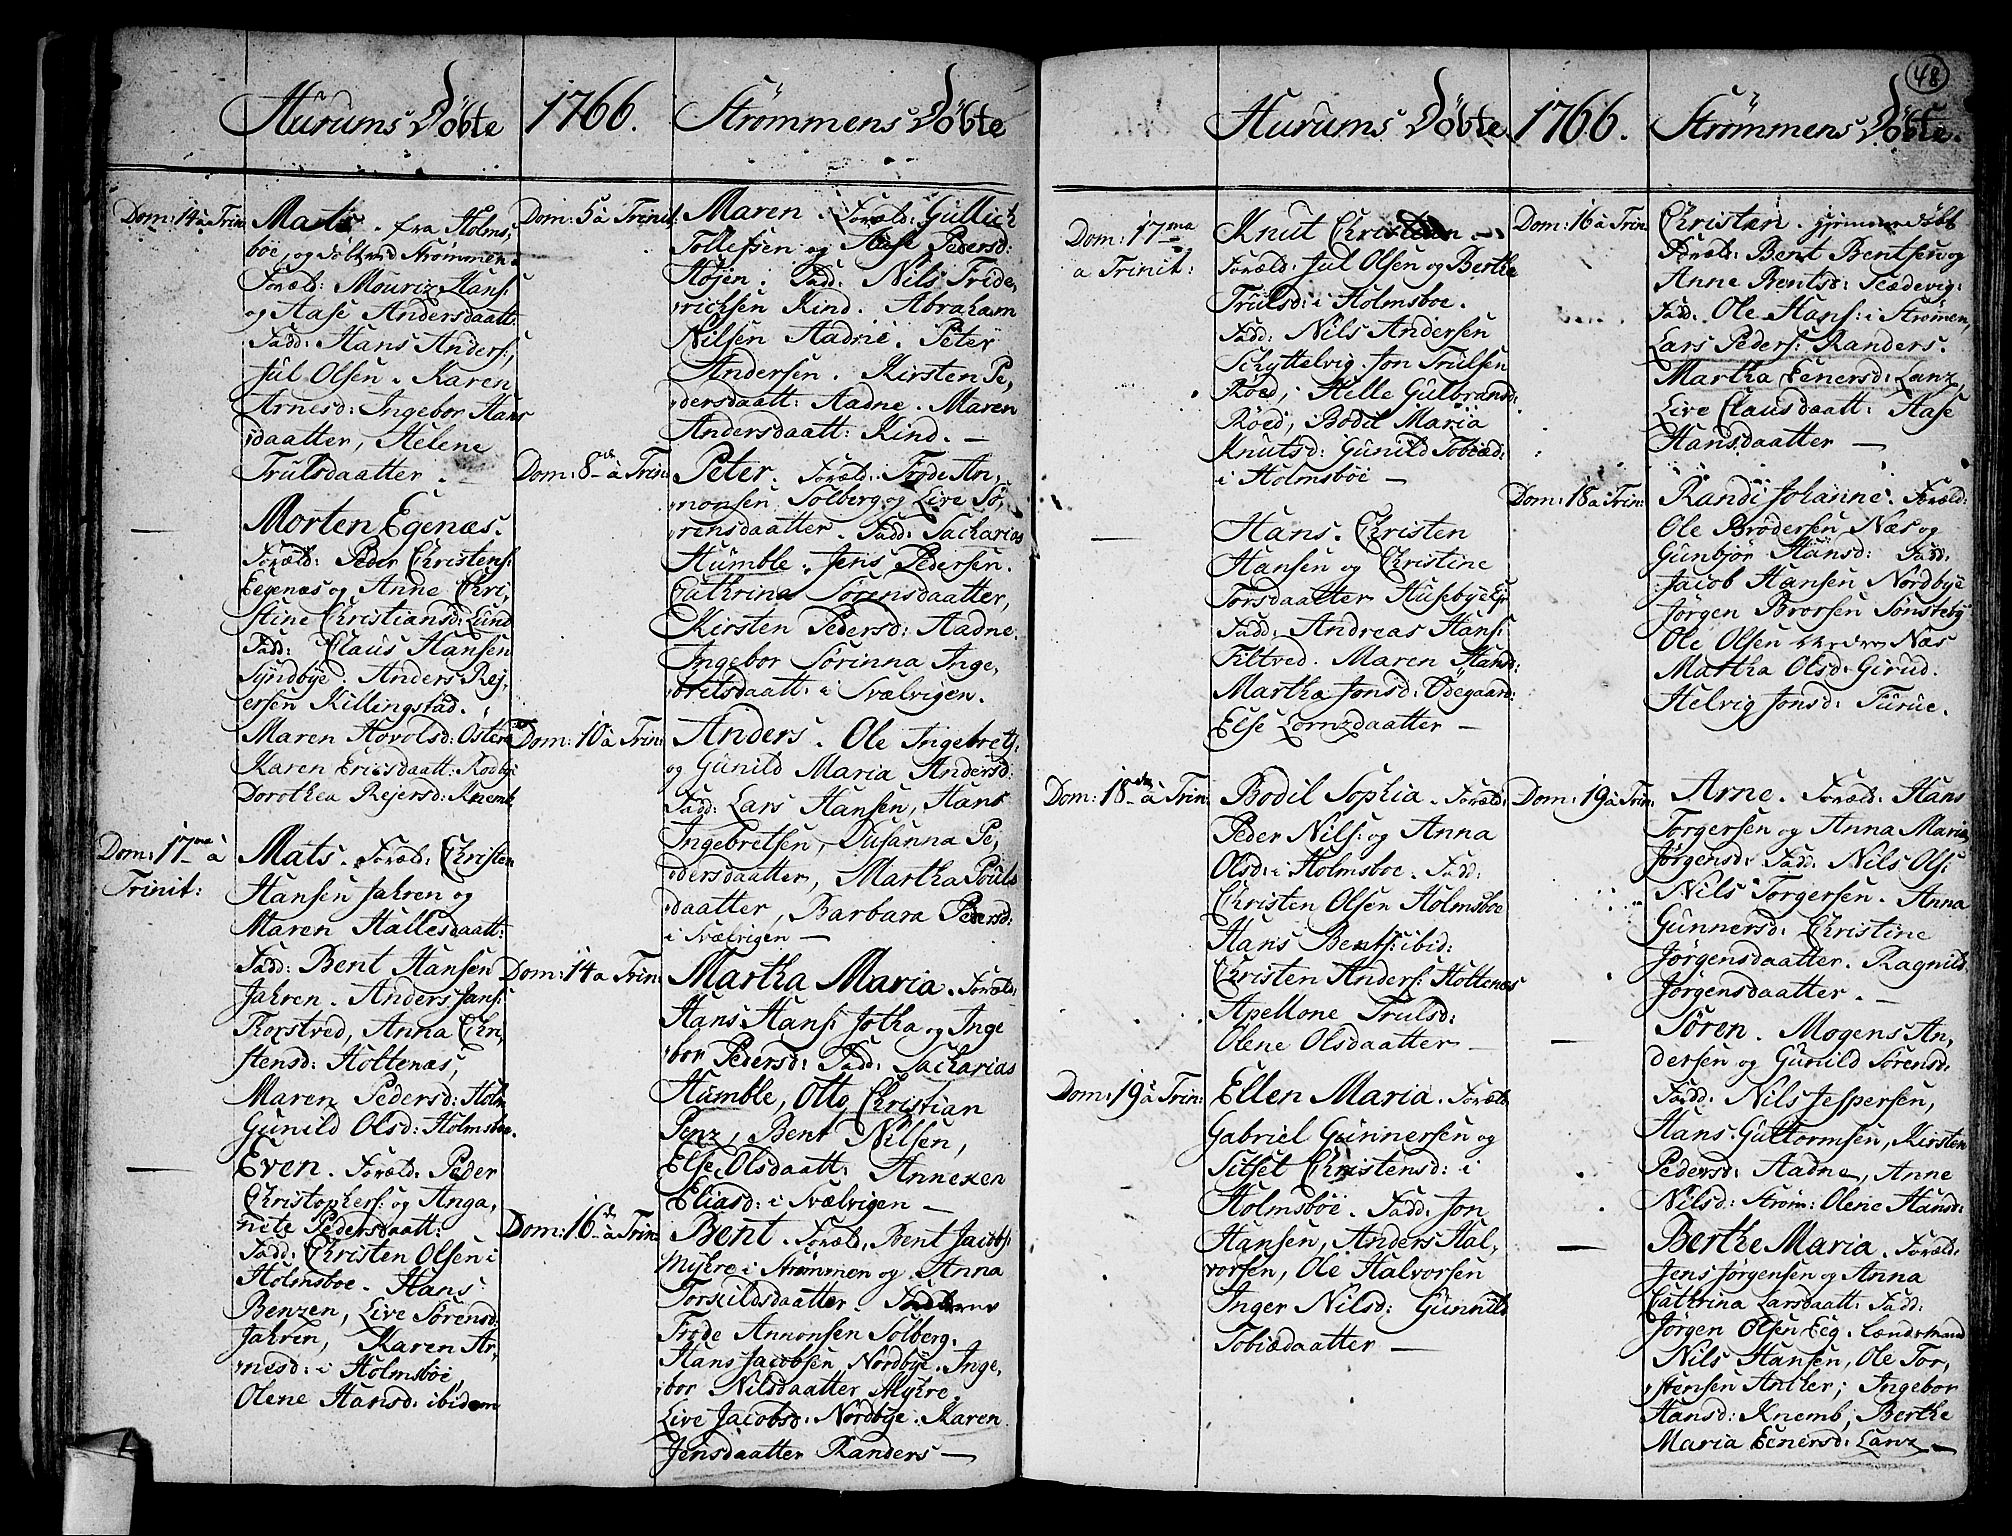 Hurums Döbte
1766.
Dom: 14 à Trin:
Mats. fra Holms,
böe, og döbt ved Strömmen.
Foræld: Mouriz Hans:
og Aase Andersdaatt:
Fadd: Hans Anders:,
Jul Olsen. Karen
Arnesd: Ingebor Hans
daatter, Helene
Trulsdaatter.
—
Morten Egenæs.
Foræld: Peder Christens:
Eegenæs og Anne Chri,
stine Christiansd: Lund
Fadd: Claus Hansen
Syndbye. Anders Rej,
ersen Killingstad.
Maren Hovolsd: Östern
Karen Ericsdaatt: Rödbye
Dorothea Rejersd: Knemb.
Dom: 17ma à
Trinit:
Mats. Foræld: Christen
Hansen Jahren og
Maren Hallesdaatt:
Fadd: Bent Hansen
Jahren. Anders Jans:
Thorstved, Anna Chri,
stensd: Holtenæs,
Maren Pedersd: Holm
Gunild Olsd: Holmsboe.
—
Even. Foræld: Peder
Christophers: og Anga,
nete Pedersdaatt:
Fadd: Christen Olsen i
Holmsboe. Hans
Benzen, Live Sörensd:
Jahren, Karen Ar,
nesd: i Holmsböe,
Olene Hansd: ibidem
Strömmens Döbte
Dom: 5 à Trinit:
Maren. Foræld: Gullich
Tollefsen og Aase Pedersd:
Höjen. Fadd: Nils Fride,
richsen Kind. Abraham
Nilsen Aadne. Peter
Andersen. Kirsten Pe,
dersdaatt: Aadne. Maren
Andersdaatt: Kind. —
Dom: 8de à Trin:
Peter. Foræld: Frode An,
nonsen Solberg og Live Sö,
rensdaatter. Fadd: Sacharias
Humble. Jens Pedersen.
Cathrina Sörensdaatter,
Kirsten Pedersd: Aadne.
Ingebor Sörinna Inge,
bretsdaatt: i Svælvigen.
Dom: 10 à Trin:
Anders. Ole Ingebrets:
og Gunild Maria Andersd:
Fadd: Lars Hansen, Hans
Ingebretsen, Susanna Pe,
dersdaatter, Martha Pouls
daatter, Barbara Pedersd:
i Svælvigen —
Dom: 14 à Trin:
Martha Maria. Foræld:
Hans Hans: Jotha og Inge
bor Pedersd: Fadd: Sacharias
Humble, Otto Christian
Penz, Bent Nilsen,
Else Olsdaatt: Annexen
Eliasd: i Svælvigen —
Dom: 16de à Trin:
Bent. Foræld: Bent Jacobs:
Myhre i Strömmen og Anna
Torskildsdaatter. Fadderne
Frode Annonsen Solberg.
Hans Jacobsen, Nordbye. Inge,
bor Nilsdaatter Myhre.
Live Jacobsd: Nordbye. Karen
Jensdaatter Randers —
48
Hurums Döbte
1766.
Dom: 17ma
à Trinit:
Knut Christian —
Foræld: Jul Olsen og Berthe
Trulsd: i Holmsboe.
Fadd: Nils Andersen
Schyttelvig. Jon Trulsen
Röed, Helle Gulbrands:
Röed, Bodil Maria
Knutsd: Gunild Tobiæd:
i Holmsböe —
—
Hans. Christen
Hansen og Christine
Torsdaatter Husebye Ejr
Fadd: Andreas Hans:
Filtved. Maren Hansd:
Martha Jonsd: Ödegaard:
Else Lornzdaatter —
Dom: 18de à Trin:
Bodil Sophia. Foræld:
Peder Nils: og Anna
Olsd: i Holmsboe. Fadd:
Christen Olsen Holmsboe
Hans Bents: ibid:
Christen Anders: Holtenæs
Apellone Trulsd:
Olene Olsdaatter —
Dom: 19 à Trin:
Ellen Maria. Foræld:
Gabriel Gunnersen og
Sitsel Christensd: i
Holmsböe. Fadd: Jon
Hansen, Anders Hal,
vorsen, Ole Halvorsen
Inger Nilsd: Gunnild
Tobiædaatter —
Strömmens Döbte.
Dom: 16 à Trin:
Christen. hjemmedöbt
Foræld: Bent Bentsen og
Anne Bentsd: Teædevig:
Fadd: Ole Hans: i Strömen,
Lars Peders: Randers.
Martha Eenersd: Lanz,
Live Clausdaatt: Aase
Hansdaatter —
Dom: 18 à Trin:
Randi Johanne. Foræld:
Ole Brödersen Næs og
Gunbjör Hansd: Fadd:
Jacob Hansen Nordbye
Jörgen Brorsen Sönsteby
Ole Olsen Næs
Martha Olsd: Girud.
Helvig Jonsd: Turue.
Dom: 19 à Trin:
Arne. Foræld: Hans
Torgersen og Anna Maria
Jörgensd: Fadd: Nils Ols:
Nils Torgersen. Anna
Gunnersd: Christine
Jörgensdaatter. Ragnild
Jörgensdaatter. —
—
Sören. Mogens An,
dersen og Gunild Sörensd:
Fadd: Nils Jespersen,
Hans Guttormsen, Kirsten
Pedersd: Aadne, Anne
Nilsd: Ström: Olene Hansd:
—
Berthe Maria. Foræld:
Jens Jörgensen og Anna
Cathrina Larsdaatt: Fadd:
Jörgen Olsen Eeg. Lændsmand
Nils Hansen, Ole Tor,
stensen Ancher; Ingebor
Hansd: Knemb, Berthe
Maria Eenersd: Lanz —